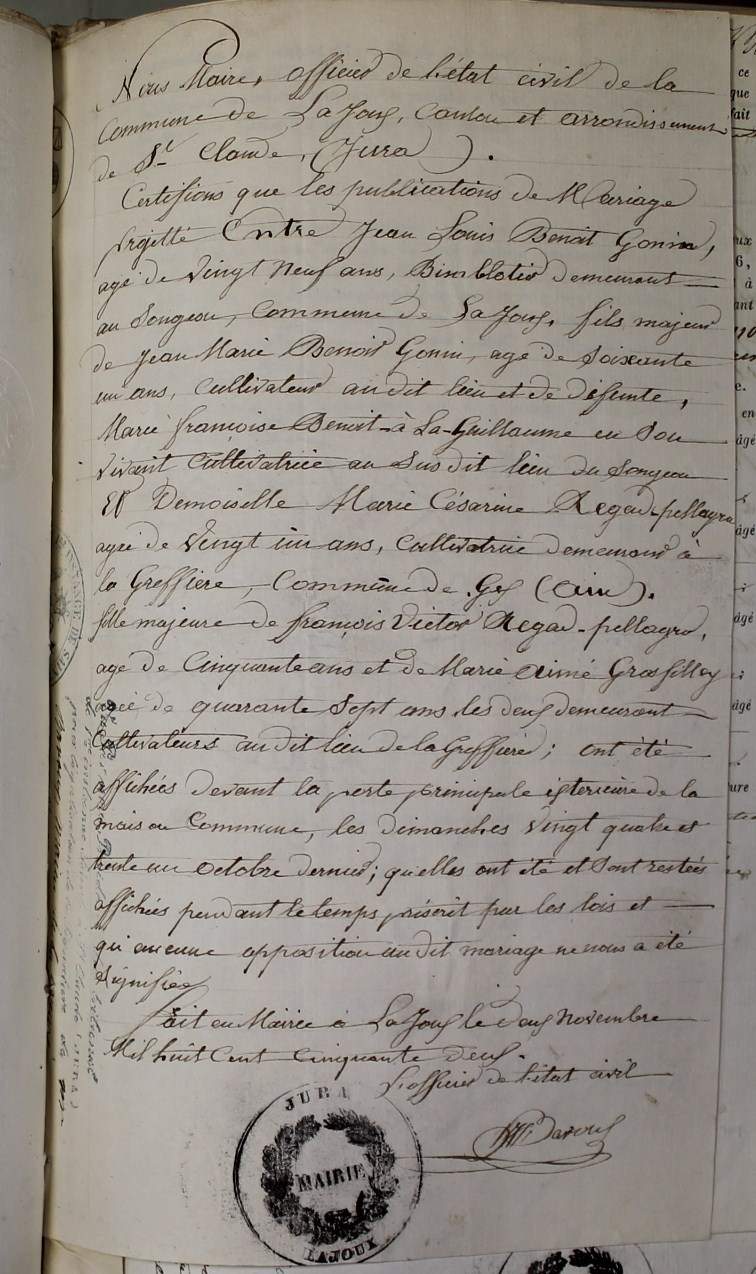 Nous Maire, officier de l'état civil de la
Commune de La Joux, Canton et arrondissement
de St Claude, (Jura).
Certifions que les publications de Mariage
projetté Entre Jean Louis Benoit Gonin,
agé de vingt neuf ans, Bimblotier demeurant
au Songeon, Commune de La Joux, fils majeur
de Jean Marie Benoit Gonin, agé de Soixante
un ans, cultivateur audit lieu et de défunte,
Marie françoise Benoit-à La-Guillaume en Son
vivant Cultivatrice au Susdit lieu du Songeon
Et Demoiselle Marie Césarine Regad-pellagru
agée de vingt un ans, Cultivatrice demeurant à
la Greffière, Commune de Gex (ain).
fille majeure de françois Victor Regad-pellagru,
agé de Cinquante ans et de Marie aimé Grosfilley
agée de quarante Sept ans les deux demeurant
Cultivateurs audit lieu de la Greffière; ont été
affichées devant la porte principale exterieure de la
maison Commune, les dimanches vingt quatre et
trente un octobre dernier; qu'elles ont été et Sont restées
affichées pendant le temps préscrit par les lois et
qu'aucune opposition audit mariage ne nous a été
Signifiée
Fait en Mairie à La Joux le deux Novembre
Mil huit Cent Cinquante deux.
L'officier de l'état civil
JURA
MAIRIE
LAJOUX
ce
que
fait
aux
6,
à
ant
e.
en
âgé
âgé
âgé
âgé
ure